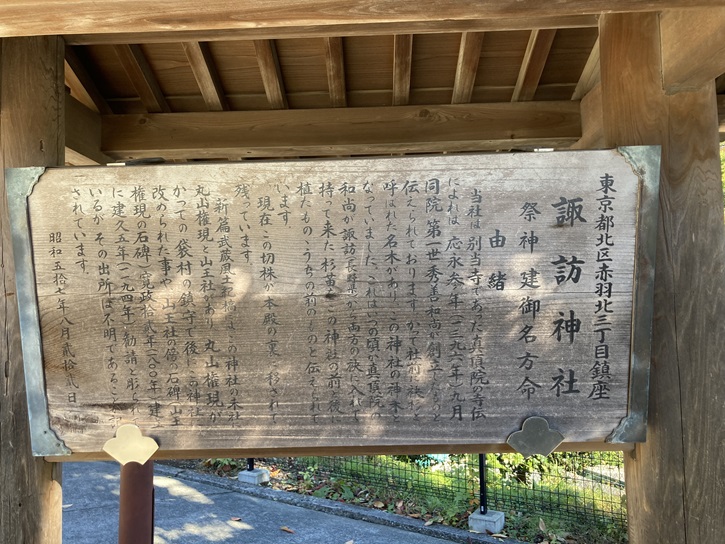 東京都北区赤羽北三丁目鎮座
諏訪神社
祭神 建御名方命
由緒
当社は、別当寺であった真頂院の寺伝
によれば、応永参年(一三九六年)九月
同院第一世秀善和尚が創立したものと
伝えられております。かつて社前に
呼ばれた名木があり、この神社の神木と
なっていました。これはいつの頃か真頂院の
和尚が諏訪(長野県)から両方の袂に入れて
持って来た杉の苗をこの神社の前と後に
植えたもののうちの前のものと伝えられて
います。
現在この切株が本殿の裏へ移されて
残っています。
新篇武蔵風土記稿によればこの神社の末社
丸山権現と山王社があり、丸山権現が
かつての袋村の鎮守で後にこの神社に
改められた事や、山王社の傍の石碑(山王
権現の石碑)寛政拾弐年(一八〇〇年)建
に建久五年(一一九四年)勧請と彫られて
いるが、その出所は不明であること
されています。
昭和五拾七年八月弐拾弐日